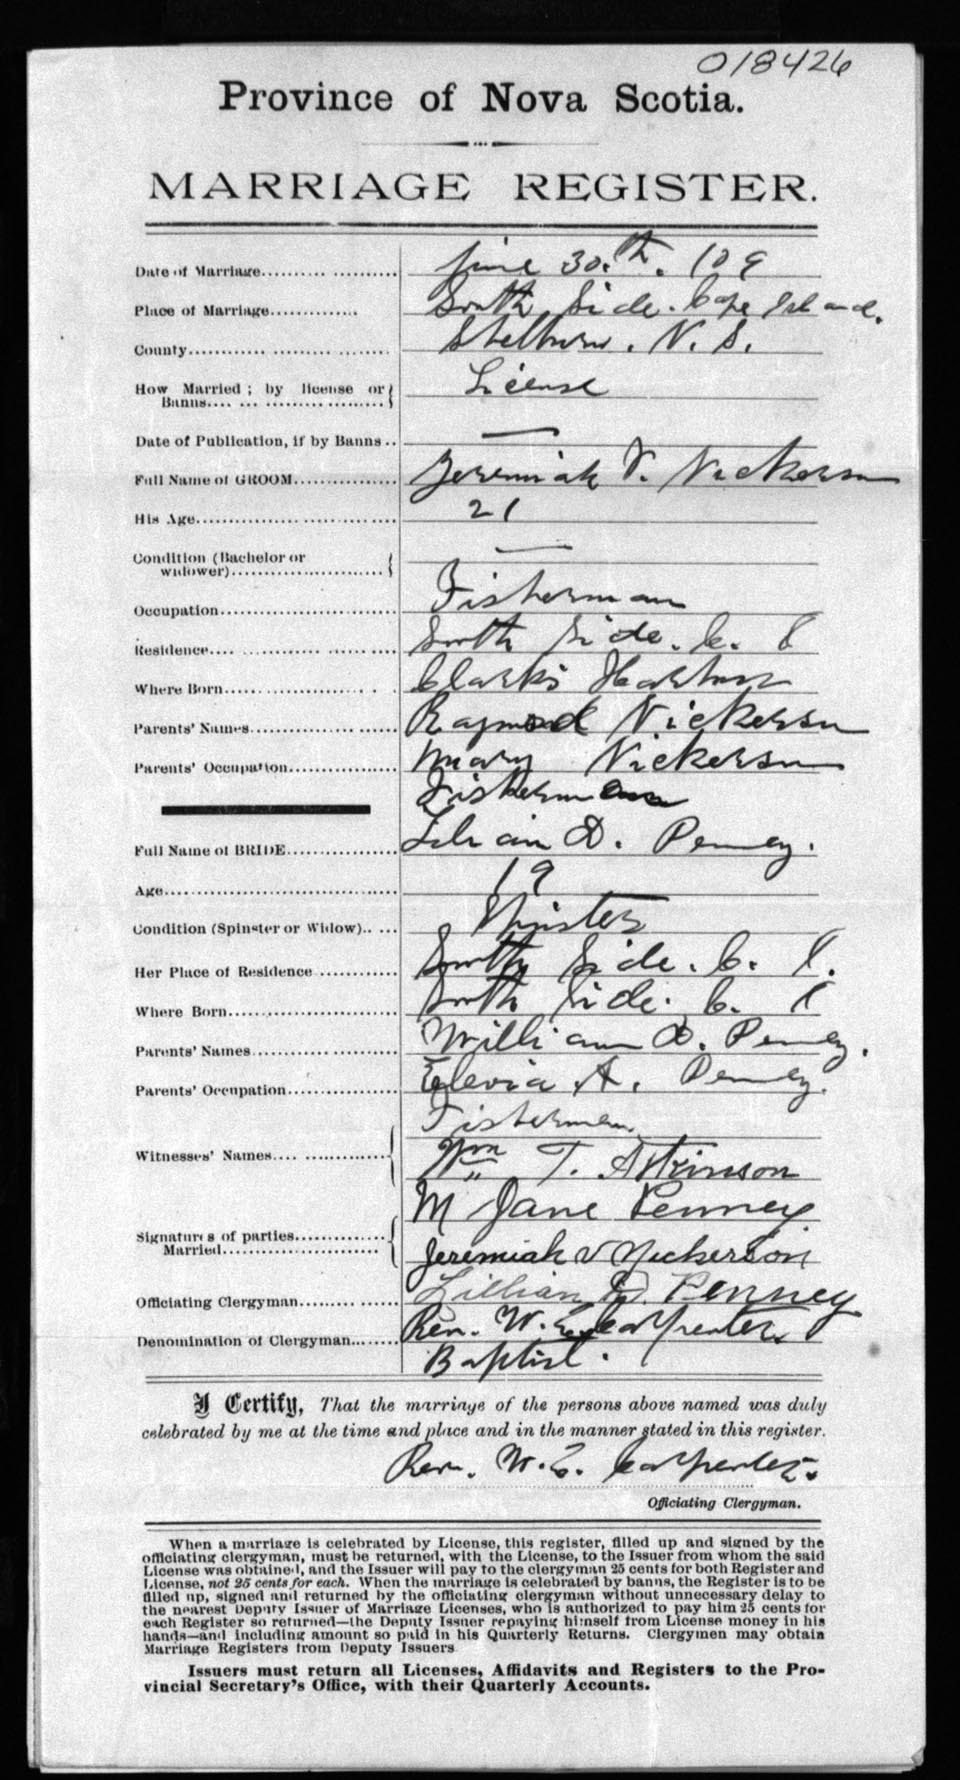 018426
Province of Nova Scotia.
MARRIAGE REGISTER.
Date of Marriage.................. June 30.th. 109
Place of Marriage............. South Side. Cape Island.
County.................. Shelburne. N. S.
How Married ; by license or
Banns.................. License
Date of Publication, if by Banns .. —
Full Name of GROOM............... Jeremiah V. Nickerson
His Age.......................... 21
Condition (Bachelor or
widower)..................... —
Occupation...................... Fisherman
Residence.... .................. South Side. C. I
Where Born.................. Clarks Harbour
Parents' Names.................. Raymond Nickerson
Parents' Occupation............... Mary Nickerson
Fisherman
Full Name of BRIDE............... Lilian D. Penney.
Age............................. 19
Condition (Spinster or Widow).. ... Spinster
Her Place of Residence ........... South Side. C. I.
Where Born...................... South Side. C. I
Parents' Names.................. William D. Penney.
Parents' Occupation............... A. Penney.
Fisherman
Witnesses' Names.... ............. Wm T. Atkinson
M Jane Penney
Signatures of parties..............
Married....................... Jeremiah V Nickerson
Lillian D. Penney
Officiating Clergyman............. Rev. W. E. Carpenter.
Denomination of Clergyman....... Baptist.
I Certify, That the marriage of the persons above named was duly
celebrated by me at the time and place and in the manner stated in this register.
Rev. W. E. Carpenter.
Officiating Clergyman.
When a marriage is celebrated by License, this register, filled up and signed by the
officiating clergyman, must be returned, with the License, to the Issuer from whom the said
License was obtained, and the Issuer will pay to the clergyman 25 cents for both Register and
License, not 25 cents for each. When the marriage is celebrated by banns, the Register is to be
filled up, signed and returned by the officiating clergyman without unnecessary delay to
the nearest Deputy Issuer of Marriage Licenses, who is authorized to pay him 25 cents for
each Register so returned—the Deputy Issuer repaying himself from License money in his
hands—and including amount so paid in his Quarterly Returns. Clergymen may obtain
Marriage Registers from Deputy Issuers
Issuers must return all Licenses, Affidavits and Registers to the Pro-
vincial Secretary's Office, with their Quarterly Accounts.